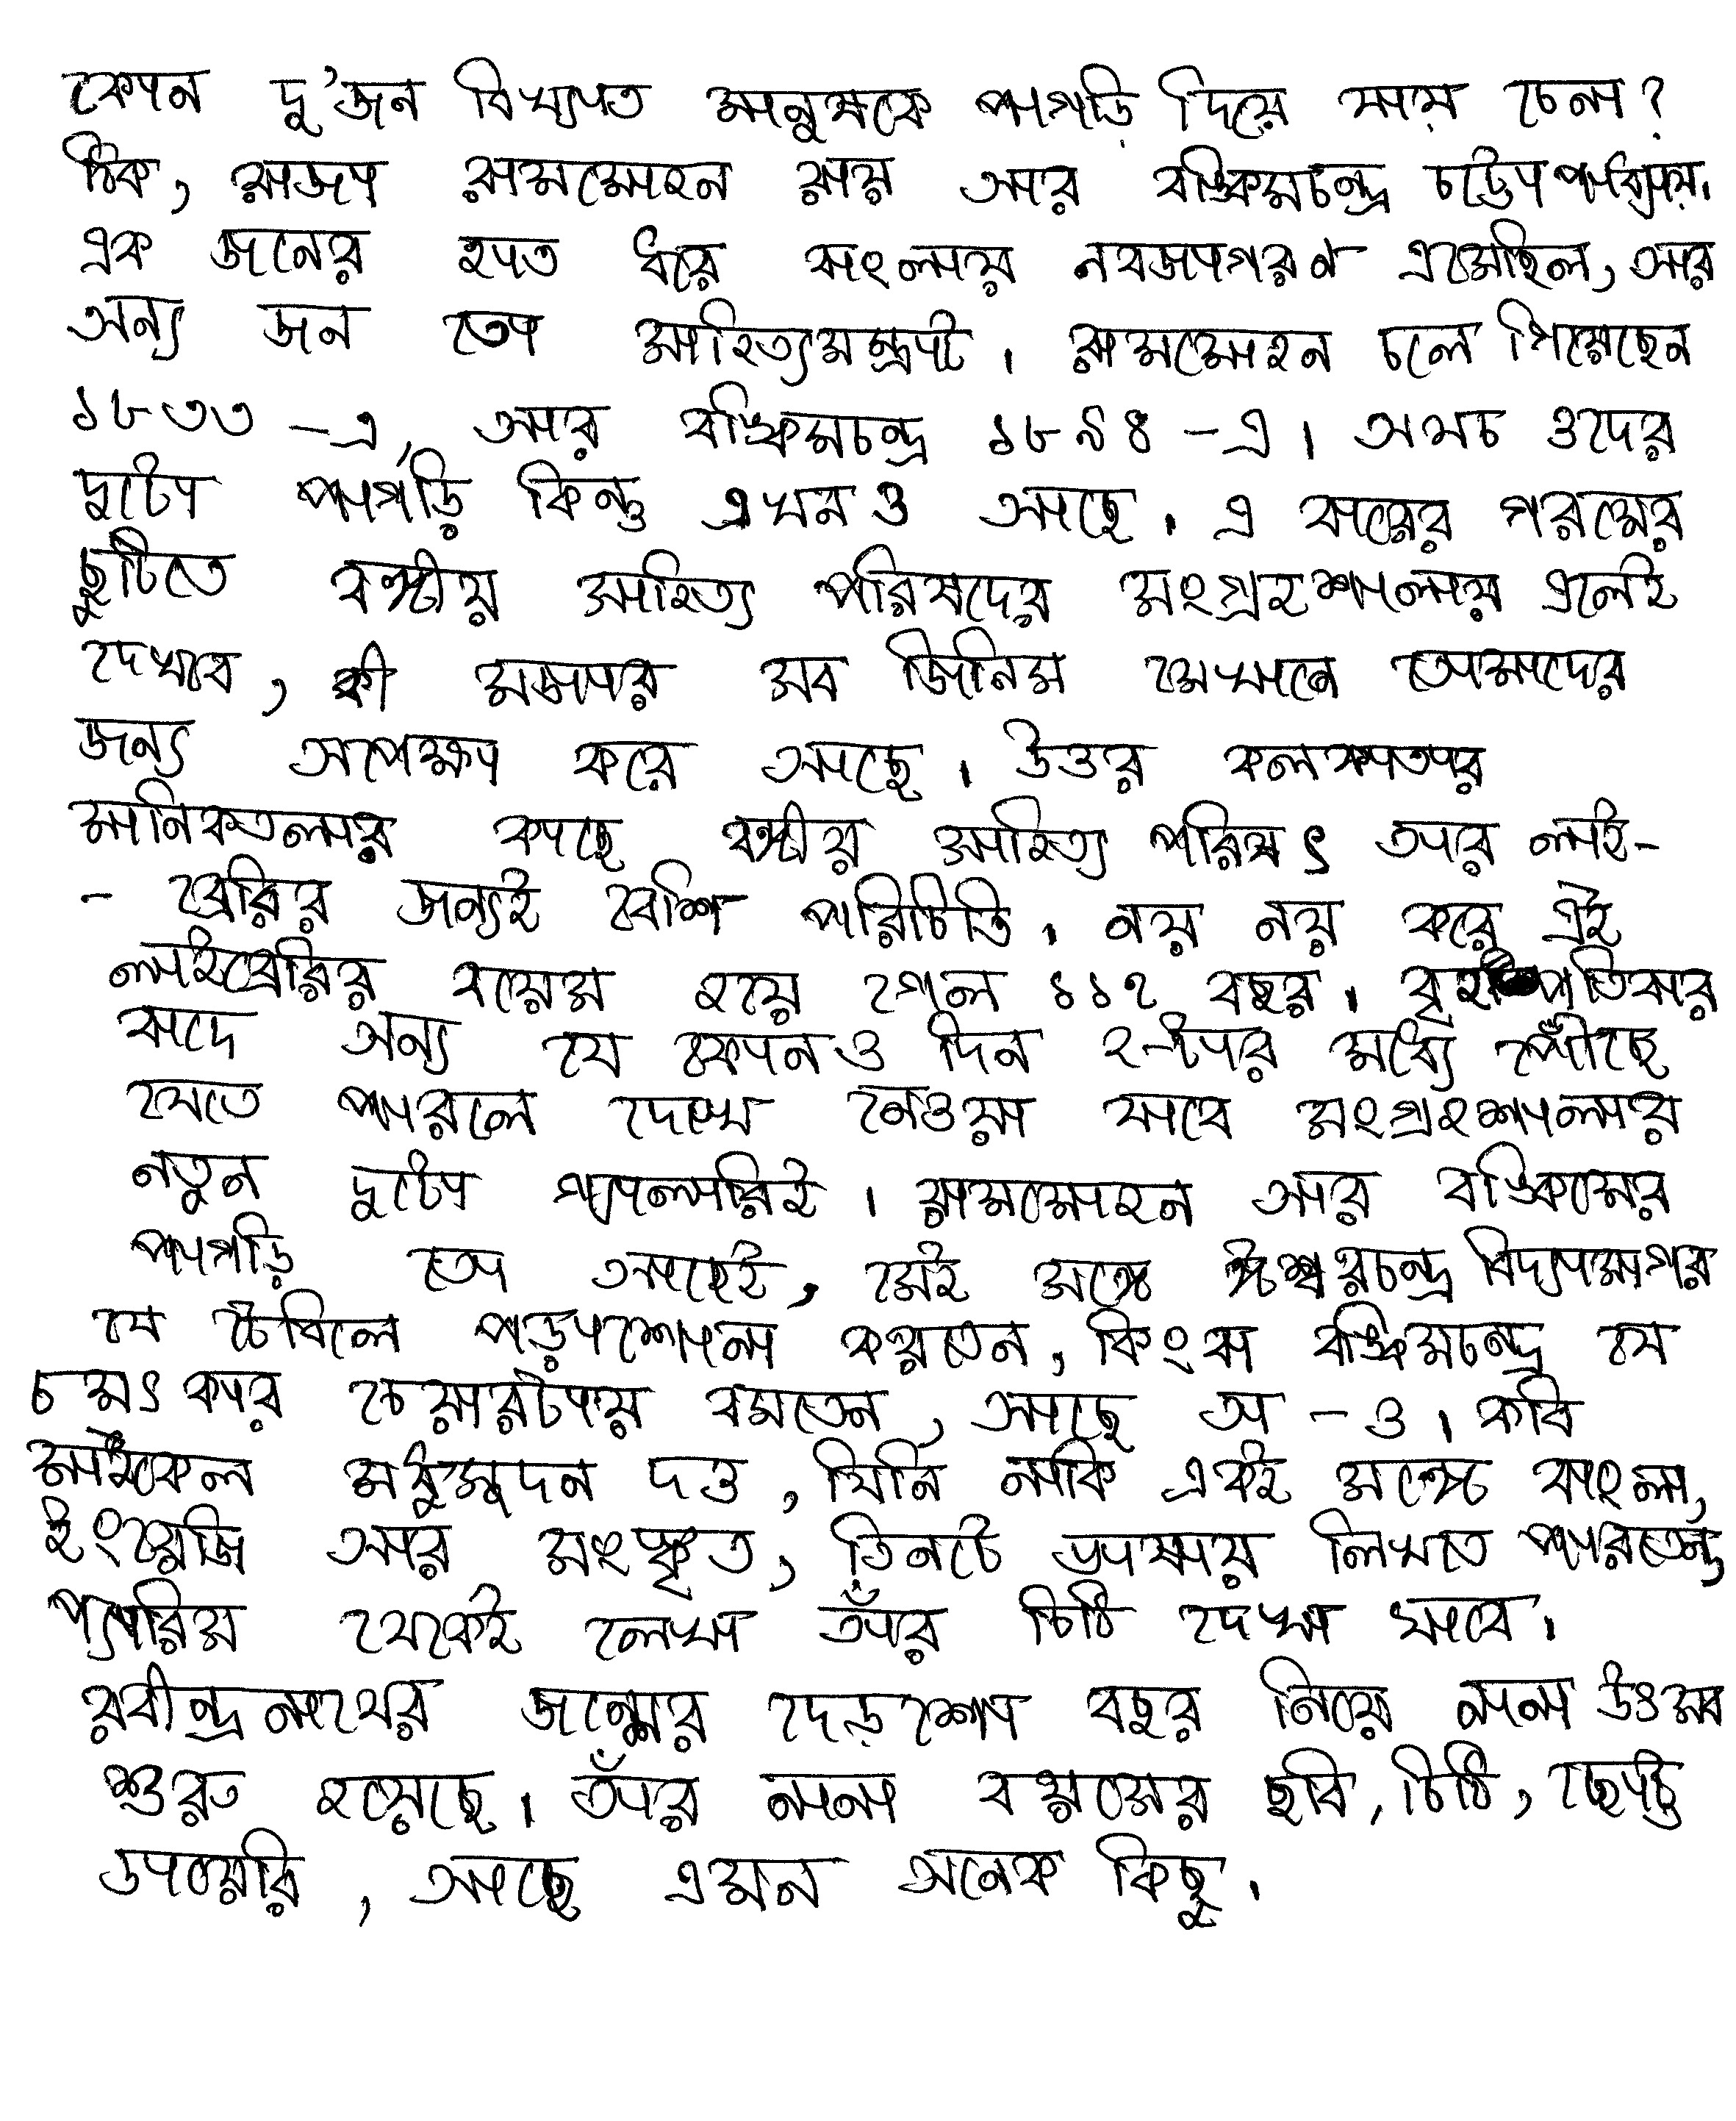 কোন দু'জন বিখ্যাত মানুষকে পাগড়ি দিয়ে যায় চেনা?
ঠিক, রাজা রামমোহন রায় আর বঙ্কিমচন্দ্র চট্টোপাধ্যায়।
এক জনের হাত ধরে বাংলায় নবজাগরণ এসেছিল, আর
অন্য জন তো সাহিত্যসম্রাট। রামমোহন চলে গিয়েছেন
১৮৩৩ -এ, আর বঙ্কিমচন্দ্র ১৮৯৪ -এ। অথচ ওদের
দুটো পাগড়ি কিন্তু এখনও আছে। এ বারের গরমের
ছুটিতে বঙ্গীয় সাহিত্য পরিষদের সংগ্রহশালায় এলেই
দেখবে, কী মজার সব জিনিস সেখানে তোমাদের
জন্য অপেক্ষা করে আছে। উত্তর কলকাতার
মানিকতলার কাছে বঙ্গীয় সাহিত্য পরিষৎ তার লাই-
- ব্রেরির জন্যই বেশি পরিচিতি। নয় নয় করে এই
লাইব্রেরির বয়েস হয়ে গেল ১১৭ বছর। বৃহস্পতিবার
বাদে অন্য যে কোনও দিন ২-টার মধ্যে পৌঁছে
যেতে পারলে দেখে নেওয়া যাবে সংগ্রহশালার
নতুন দুটো গ্যালারিই। রামমোহন আর বঙ্কিমের
পাগড়ি তো আছেই, সেই সঙ্গে ঈশ্বরচন্দ্র বিদ্যাসাগর
যে টেবিলে পড়াশোনা করতেন, কিংবা বঙ্কিমচন্দ্র যে
চমৎকার চেয়ারটায় বসতেন, আছে তা -ও। কবি
মাইকেল মধুসূদন দত্ত, যিনি নাকি একই সঙ্গে বাংলা,
ইংরেজি আর সংস্কৃত, তিনটে ভাষায় লিখতে পারতেন,
প্যারিস থেকেই লেখা তাঁর চিঠি দেখা যাবে।
রবীন্দ্রনাথের জন্মের দেড়শো বছর নিয়ে নানা উৎসব
শুরু হয়েছে। তাঁর নানা বয়সের ছবি, চিঠি, ছোট্ট
ডায়েরি, আছে এমন অনেক কিছু।